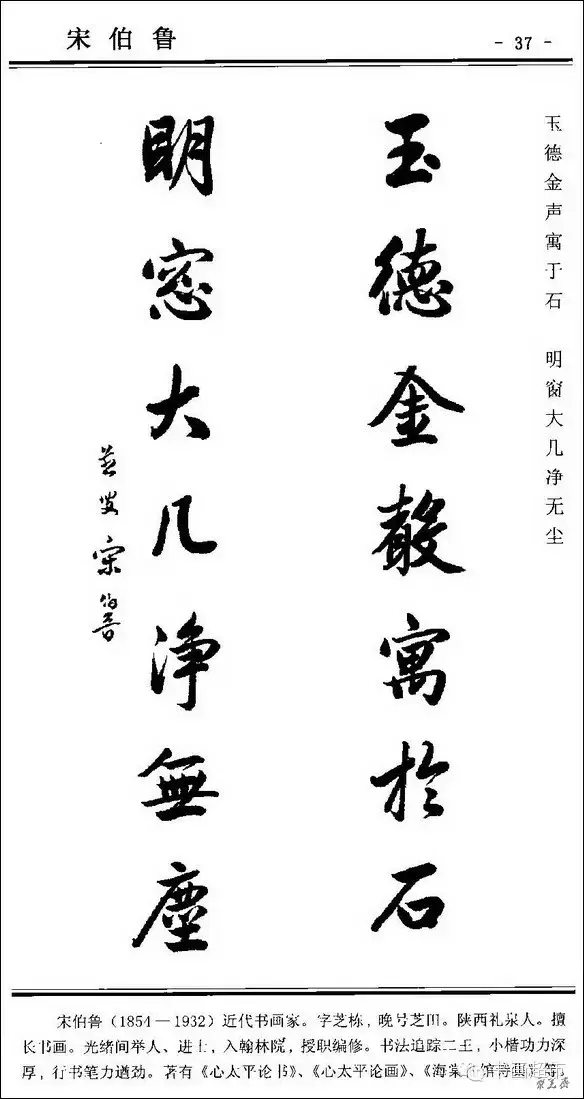 宋伯鲁
- 37 -
玉德金声寓于石 明窗大几净无尘
玉德金聲寓於石
明窓大几淨無塵
芝叟宋伯魯
宋伯鲁（1854－1932）近代书画家。字芝栋，晚号芝田。陕西礼泉人。擅
长书画。光绪间举人、进士，入翰林院，授职编修。书法追踪二王，小楷功力深
厚，行书笔力遒劲。著有《心太平论书》、《心太平论画》、《海棠仙馆诗画》等。